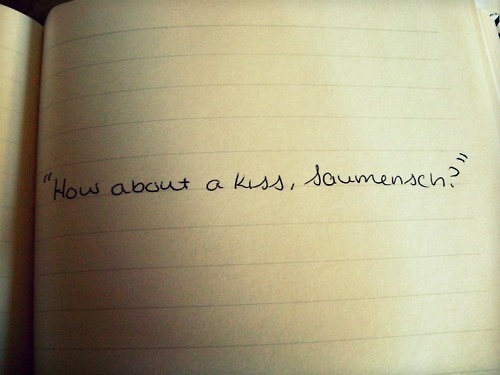 "How about a kiss, Saumensch?"